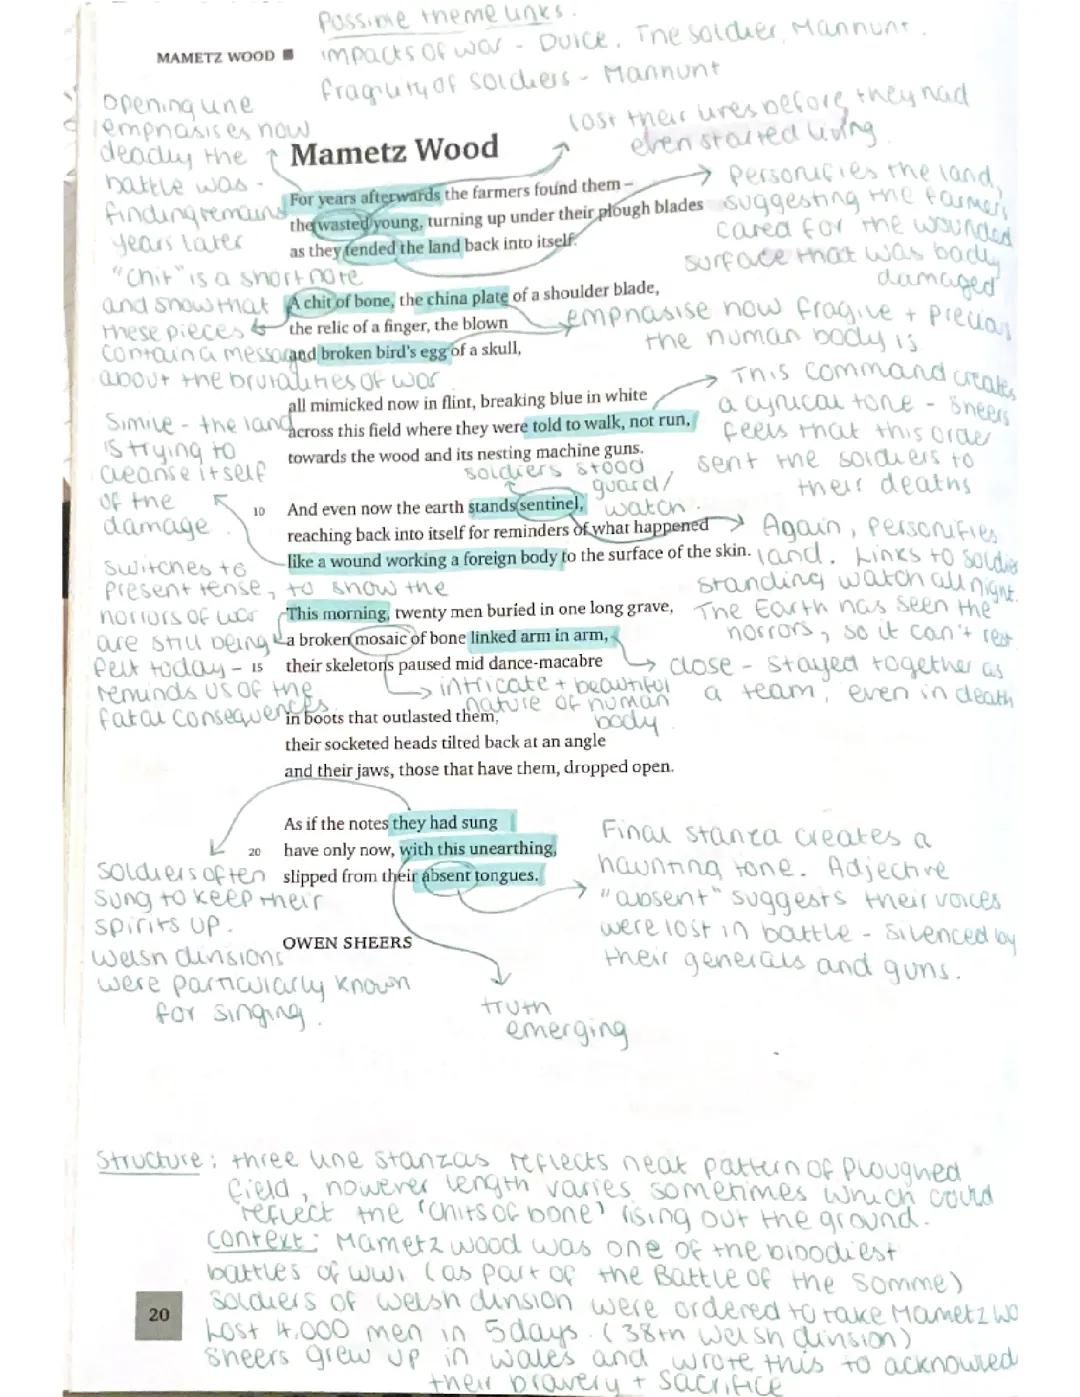 Possible theme links.
MAMETZ WOOD
impacts of war - Dulce, The Soldier, Mannunt.
fragility of soldiers - Mannunt
opening line
emphasises how
deadly the
battle was -
finding remains
years later
lost their lives before they had
even started living
Mametz Wood
For years afterwards the farmers found them –
the wasted young, turning up under their plough blades
as they tended the land back into itself.
Personifies the land,
suggesting the farmers
cared for the wounded
surface that was badly
damaged
"Chit" is a short note
and show that
these pieces
contain a message
about the brutalities of war
A chit of bone, the china plate of a shoulder blade,
the relic of a finger, the blown
and broken bird's egg of a skull,
emphasise how fragile + precious
the human body is
all mimicked now in flint, breaking blue in white
across this field where they were told to walk, not run,
towards the wood and its nesting machine guns.
This command creates
a cynical tone - Sheers
feels that this order
sent the soldiers to
their deaths
Simile - the land
is trying to
cleanse itself
of the
damage
soldiers stood
guard/
watch.
10 And even now the earth stands sentinel,
reaching back into itself for reminders of what happened
like a wound working a foreign body to the surface of the skin.
Again, Personifies
land. Links to soldier
standing watch all night.
The Earth has seen the
horrors, so it can't rest
switches to
present tense, to show the
horrors of war
are still being
felt today -
reminds us of the
fatal consequences
This morning, twenty men buried in one long grave,
a broken mosaic of bone linked arm in arm,
15 their skeletons paused mid dance-macabre
intricate + beautiful
nature of human
body
close - stayed together as
a team, even in death
in boots that outlasted them,
their socketed heads tilted back at an angle
and their jaws, those that have them, dropped open.
As if the notes they had sung
20 have only now, with this unearthing,
slipped from their absent tongues.
soldiers often
sung to keep their
spirits up.
Welsh divisions
were particularly known
for singing.
Final stanza creates a
haunting tone. Adjective
"absent" suggests their voices
were lost in battle - silenced by
their generals and guns.
OWEN SHEERS
truth
emerging
Structure: three line stanzas reflects neat pattern of ploughed
field, however length varies sometimes which could
reflect the 'chits of bone' rising out the ground.
context: Mametz wood was one of the bloodiest
battles of WW1 (as part of the Battle of the Somme)
Soldiers of Welsh division were ordered to take Mametz Wo
Lost 4,000 men in 5 days. (38th Welsh division)
20
Sheers grew up in Wales and wrote this to acknowled
their bravery + sacrifice